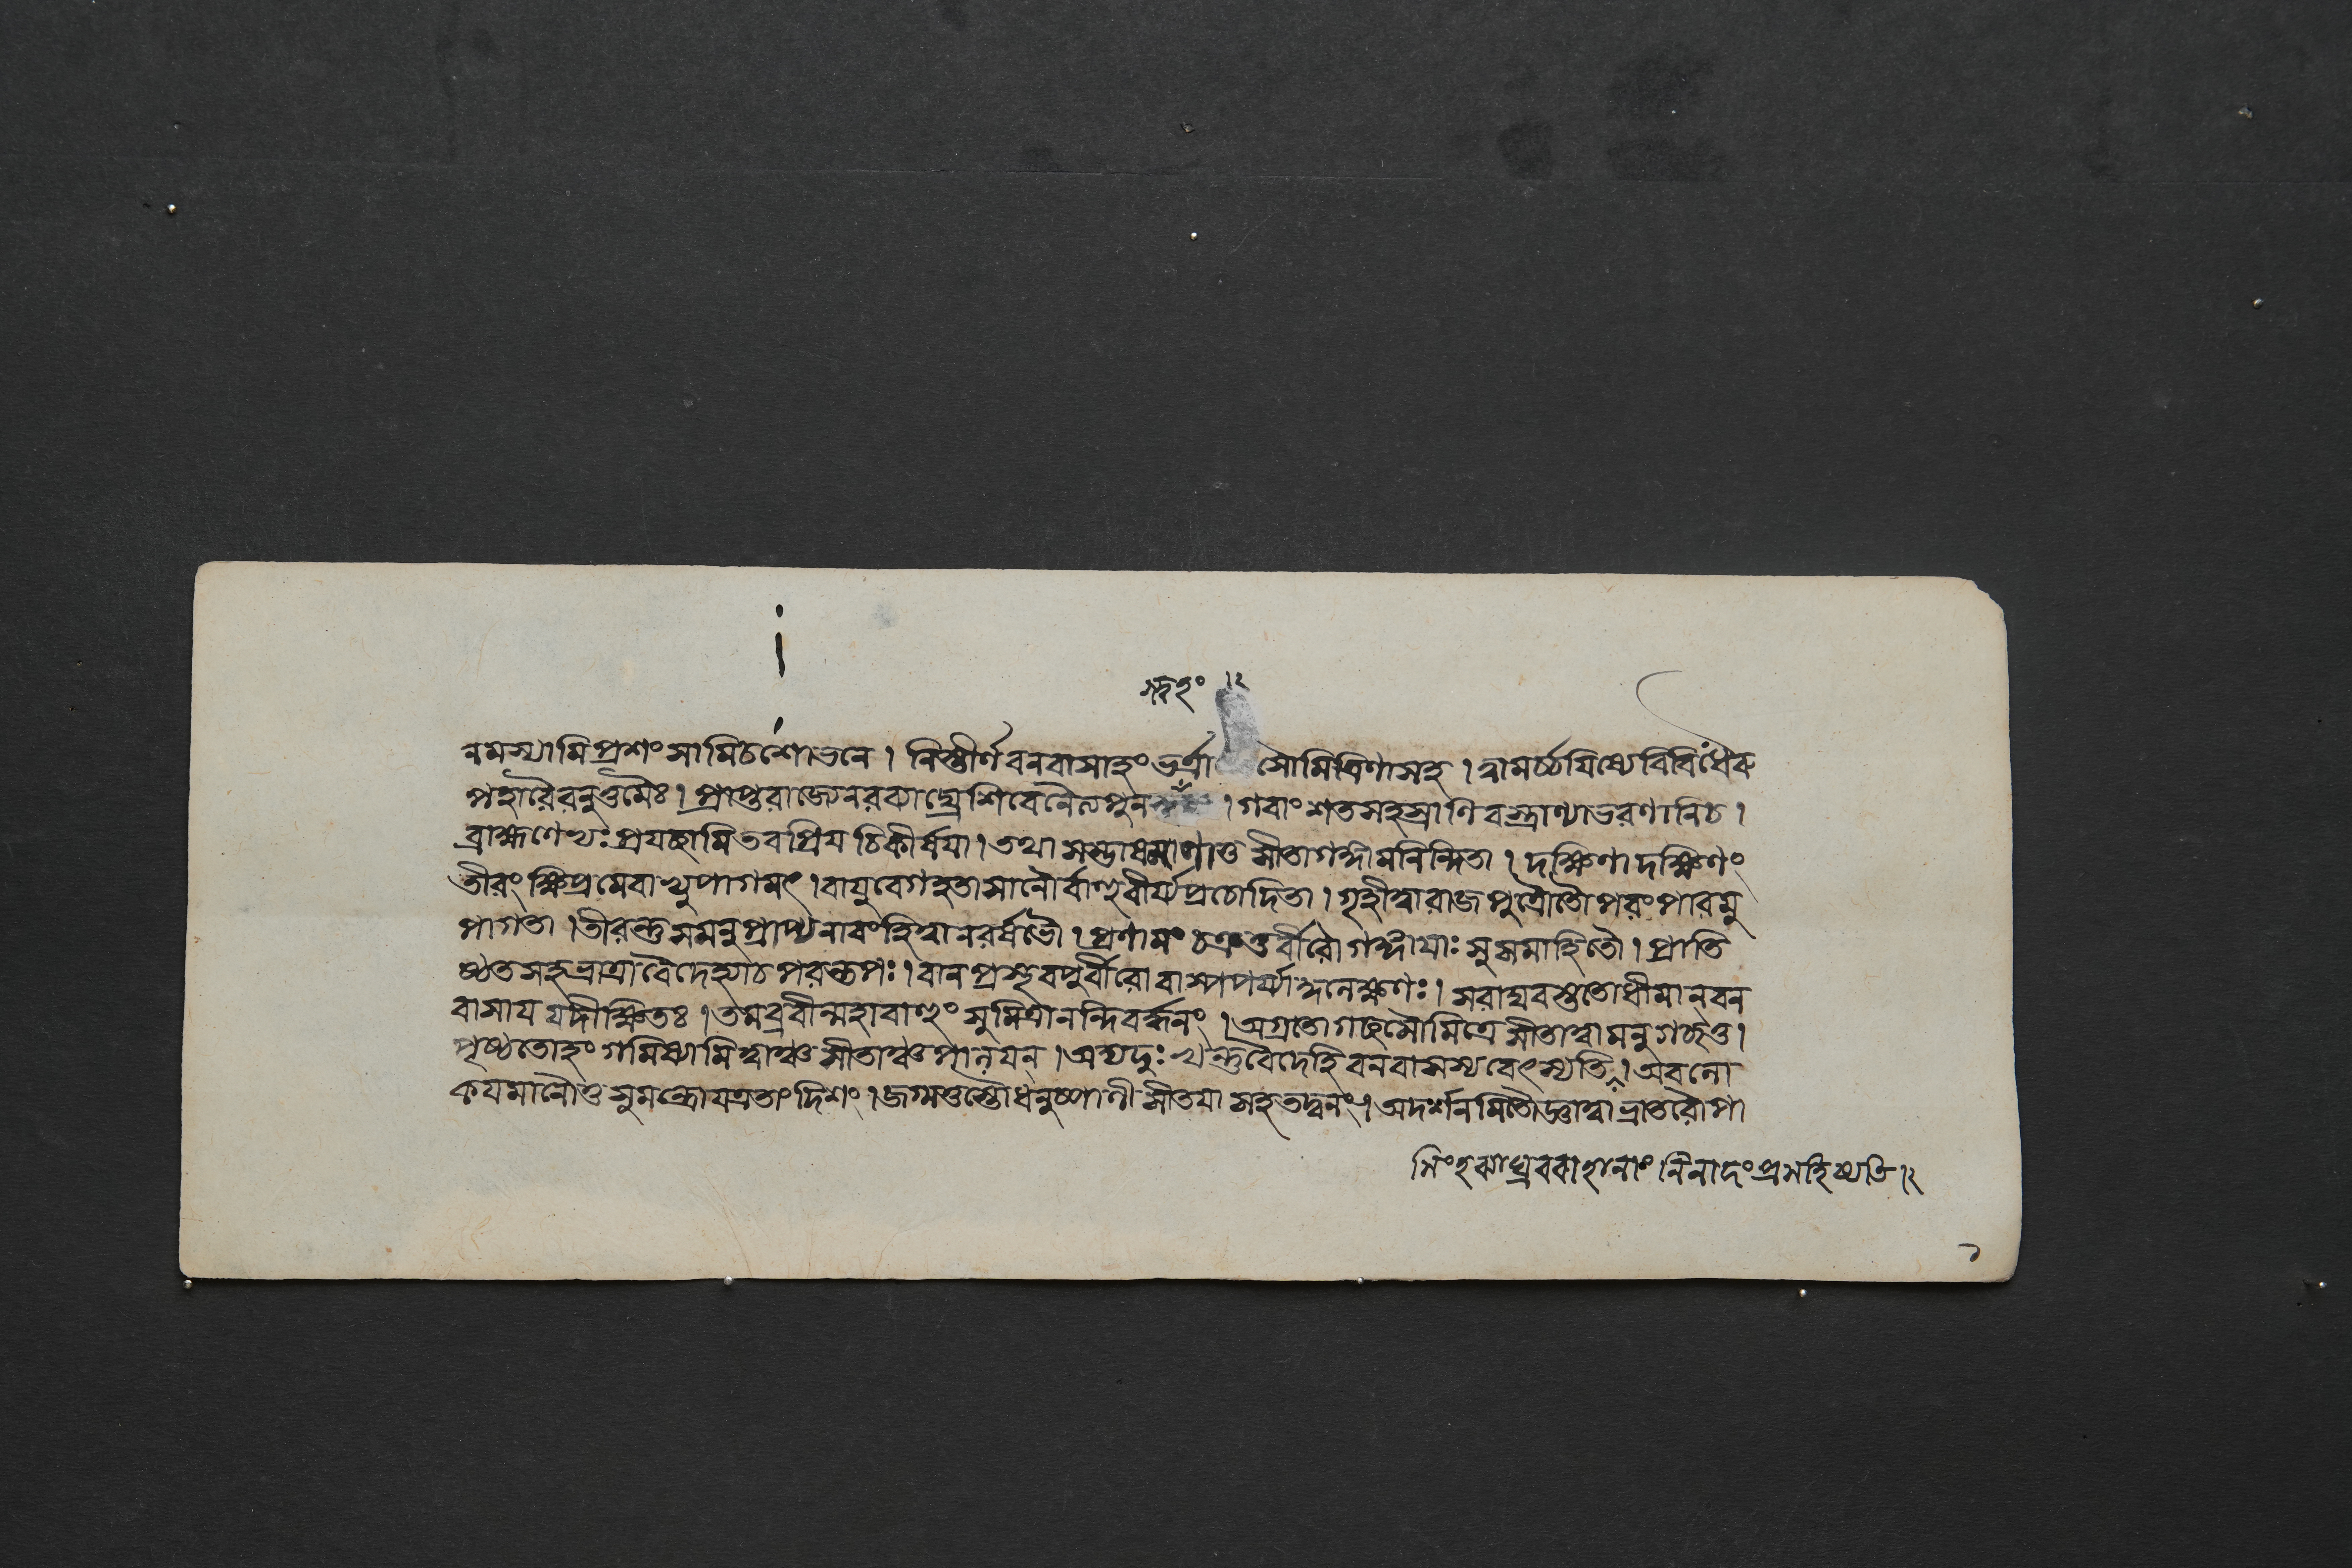 ন্ত্বহং ৷৷১
নমস্যামি প্রশংসামি চ শোভনে । নিস্তীর্ণ বনবাসাহং ভর্ত্রা সৌমিত্রিণা সহ । ত্বামর্চ্চয়িষ্যে বিবিধৈরু
পহারৈরনুত্তমৈঃ । প্রাপ্তরাজ্যে নরব্যাঘ্রে শিবেনৈত্য পুন । গবাং শতসহস্রাণি বস্ত্রাণ্যাভরণানি চ ।
ব্রাহ্মণেভ্যঃ প্রযচ্ছামি তব প্রিয় চিকীর্ষয়া । তথা সম্ভাষমাণা তু সীতা গঙ্গামনিন্দিতা । দক্ষিণা দক্ষিণং
তীরং ক্ষিপ্রমেবাভ্যুপাগমৎ । বায়ুবেগহতা সা নৌর্বাহুবীর্য্য প্রচোদিতা । গৃহীত্বা রাজপুত্রৌ তৌ পরং পারমু
পাগতা । তীরন্তু সমনুপ্রাপ্য নাবং হিত্বা নরর্ষভৌ । প্রণামং চক্রতুর্বীরৌ গঙ্গায়াঃ সুসমাহিতৌ । প্রাতি
ষ্ঠত সহ ভ্রাত্রা বৈদেহ্যা চ পরন্তপঃ । বানপ্রস্থবপুর্বীরো বাষ্পপর্য্যাকুলেক্ষণঃ । স রাঘবস্ততো ধীমান্ বন
বাসায় যদীক্ষিতঃ । তমব্রবীন্মহাবাহুং সুমিত্রানন্দিবর্দ্ধনং । অগ্রতো গচ্ছ সৌমিত্রে সীতা ত্বামনুগচ্ছতু ।
পৃষ্ঠতোহং গমিষ্যামি ত্বাঞ্চ সীতাঞ্চ পালয়ন্ । অদ্য দুঃখন্তু বৈদেহি বনবাসস্য বেৎস্যতি । অবলো
কয়মানৌ তু সুমন্ত্রো যত্র তাং দিশং । জগ্মতুস্তৌ ধনুষ্পাণী সীতয়া সহ তদ্বনং । অদর্শনমিতৌ জ্ঞাত্বা ভ্রাতরৌ সা
সিংহব্যাঘ্রবরাহানাং নিনাদং প্রসহিষ্যতি ৷১